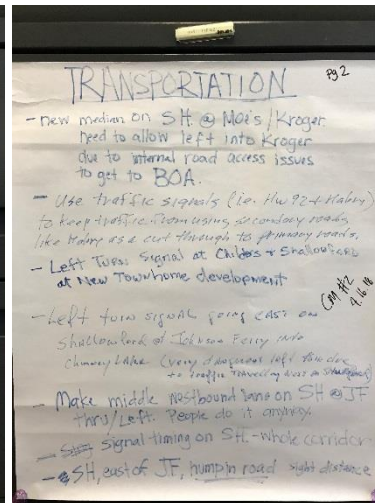 Pg 2
TRANSPORTATION
- new median on SH @ Moe's/Kroger
need to allow left into Kroger
due to internal road access issues
to get to BOA.
- Use traffic signals (i.e. Hw 92 + Mabry)
to keep traffic from using secondary roads,
like Mabry as a cut through to primary roads.
- Left Turn Signal at Childers + Shallowford
at New Townhome development
Com #2
4.16.18
- Left turn signal going east on
Shallowford at Johnson Ferry into
Chimney Lake (very dangerous left turn due
to traffic travelling west on Shallowford)
- Make middle westbound lane on SH @ JF
thru/left. People do it anyway.
- signal timing on SH - whole corridor
- SH, east of JF, hump in road sight distance